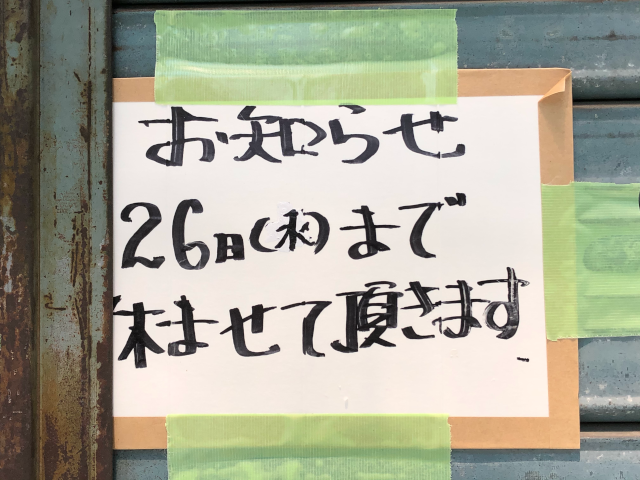 お知らせ
26日(水)まで
休ませて頂きます